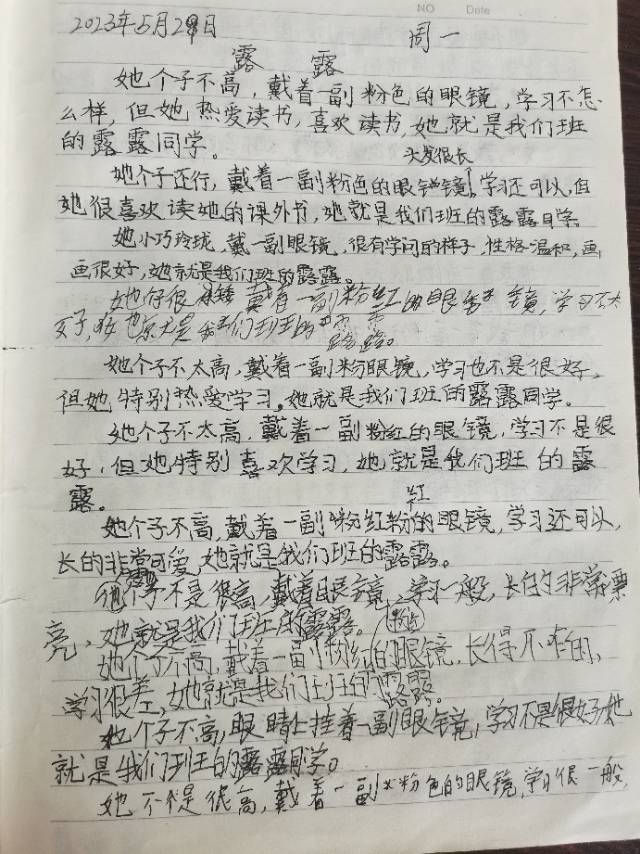 NO Date
2023年5月29日 周一
露露
她个子不高，戴着一副粉色的眼镜，学习不怎
么样，但她热爱读书，喜欢读书，她就是我们班
的露露同学。
头发很长
她个子还行，戴着一副粉色的眼镜，学习还可以，但
她很喜欢读她的课外书，她就是我们班的露露同学
她小巧玲珑，戴一副眼镜，很有学问的样子，性格温和，画
画很好，她就是我们班的露露。
她好很 戴着一副粉红的眼 镜，学习不太
好，她就是我们班的 露露。
她个子不太高，戴着一副粉眼镜，学习也不是很好，
但她特别热爱学习。她就是我们班的露露同学。
她个子不太高，戴着一副粉红的眼镜，学习不是很
好，但她特别喜欢学习，她就是我们班的露
露。
红
她个子不高，戴着一副粉红粉的眼镜，学习还可以，
长的非常可爱，她就是我们班的露露。
她个子不是很高，戴着眼镜，学习一般，长的非常漂
亮，她就是我们班的露露。
她个子不高，戴着一副粉红的眼镜，长得不咋的，
学习很差，她就是我们班的露露。
她个子不高，眼睛上挂着一副眼镜，学习不是很好她
就是我们班的露露同学。
她不是很高，戴着一副粉色的眼镜，学习很一般，